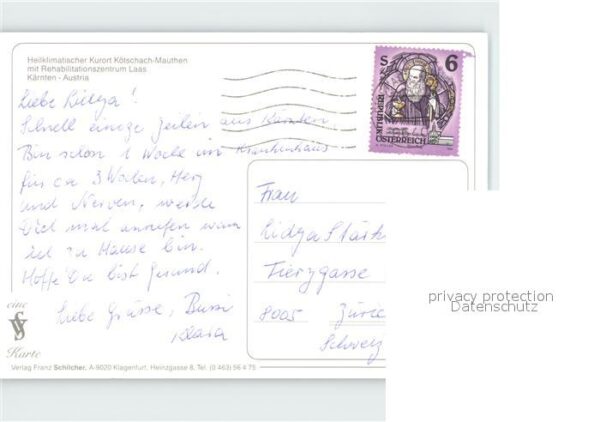 Heilklimatischer Kurort Kötschach-Mauthen
mit Rehabilitationszentrum Laas
Kärnten - Austria
S 6
REPUBLIK
ÖSTERREICH
Liebe Lidya!
Schnell einige Zeilen aus Kärnten
Bin schon 1 Woche im Krankenhaus
für ca 3 Wochen, Herz
und Nerven, werde
Dich mal anrufen wann
ich zu Hause bin.
Hoffe Du bist gesund.
Liebe Grüsse, Bussi
Klara
Frau
Lidya Stärk
Tierzgasse
8005 Zürich
Schweiz
eine
Karte
Verlag Franz Schilcher, A-9020 Klagenfurt, Heinzgasse 8, Tel. (0 463) 56 4 75
privacy protection
Datenschutz